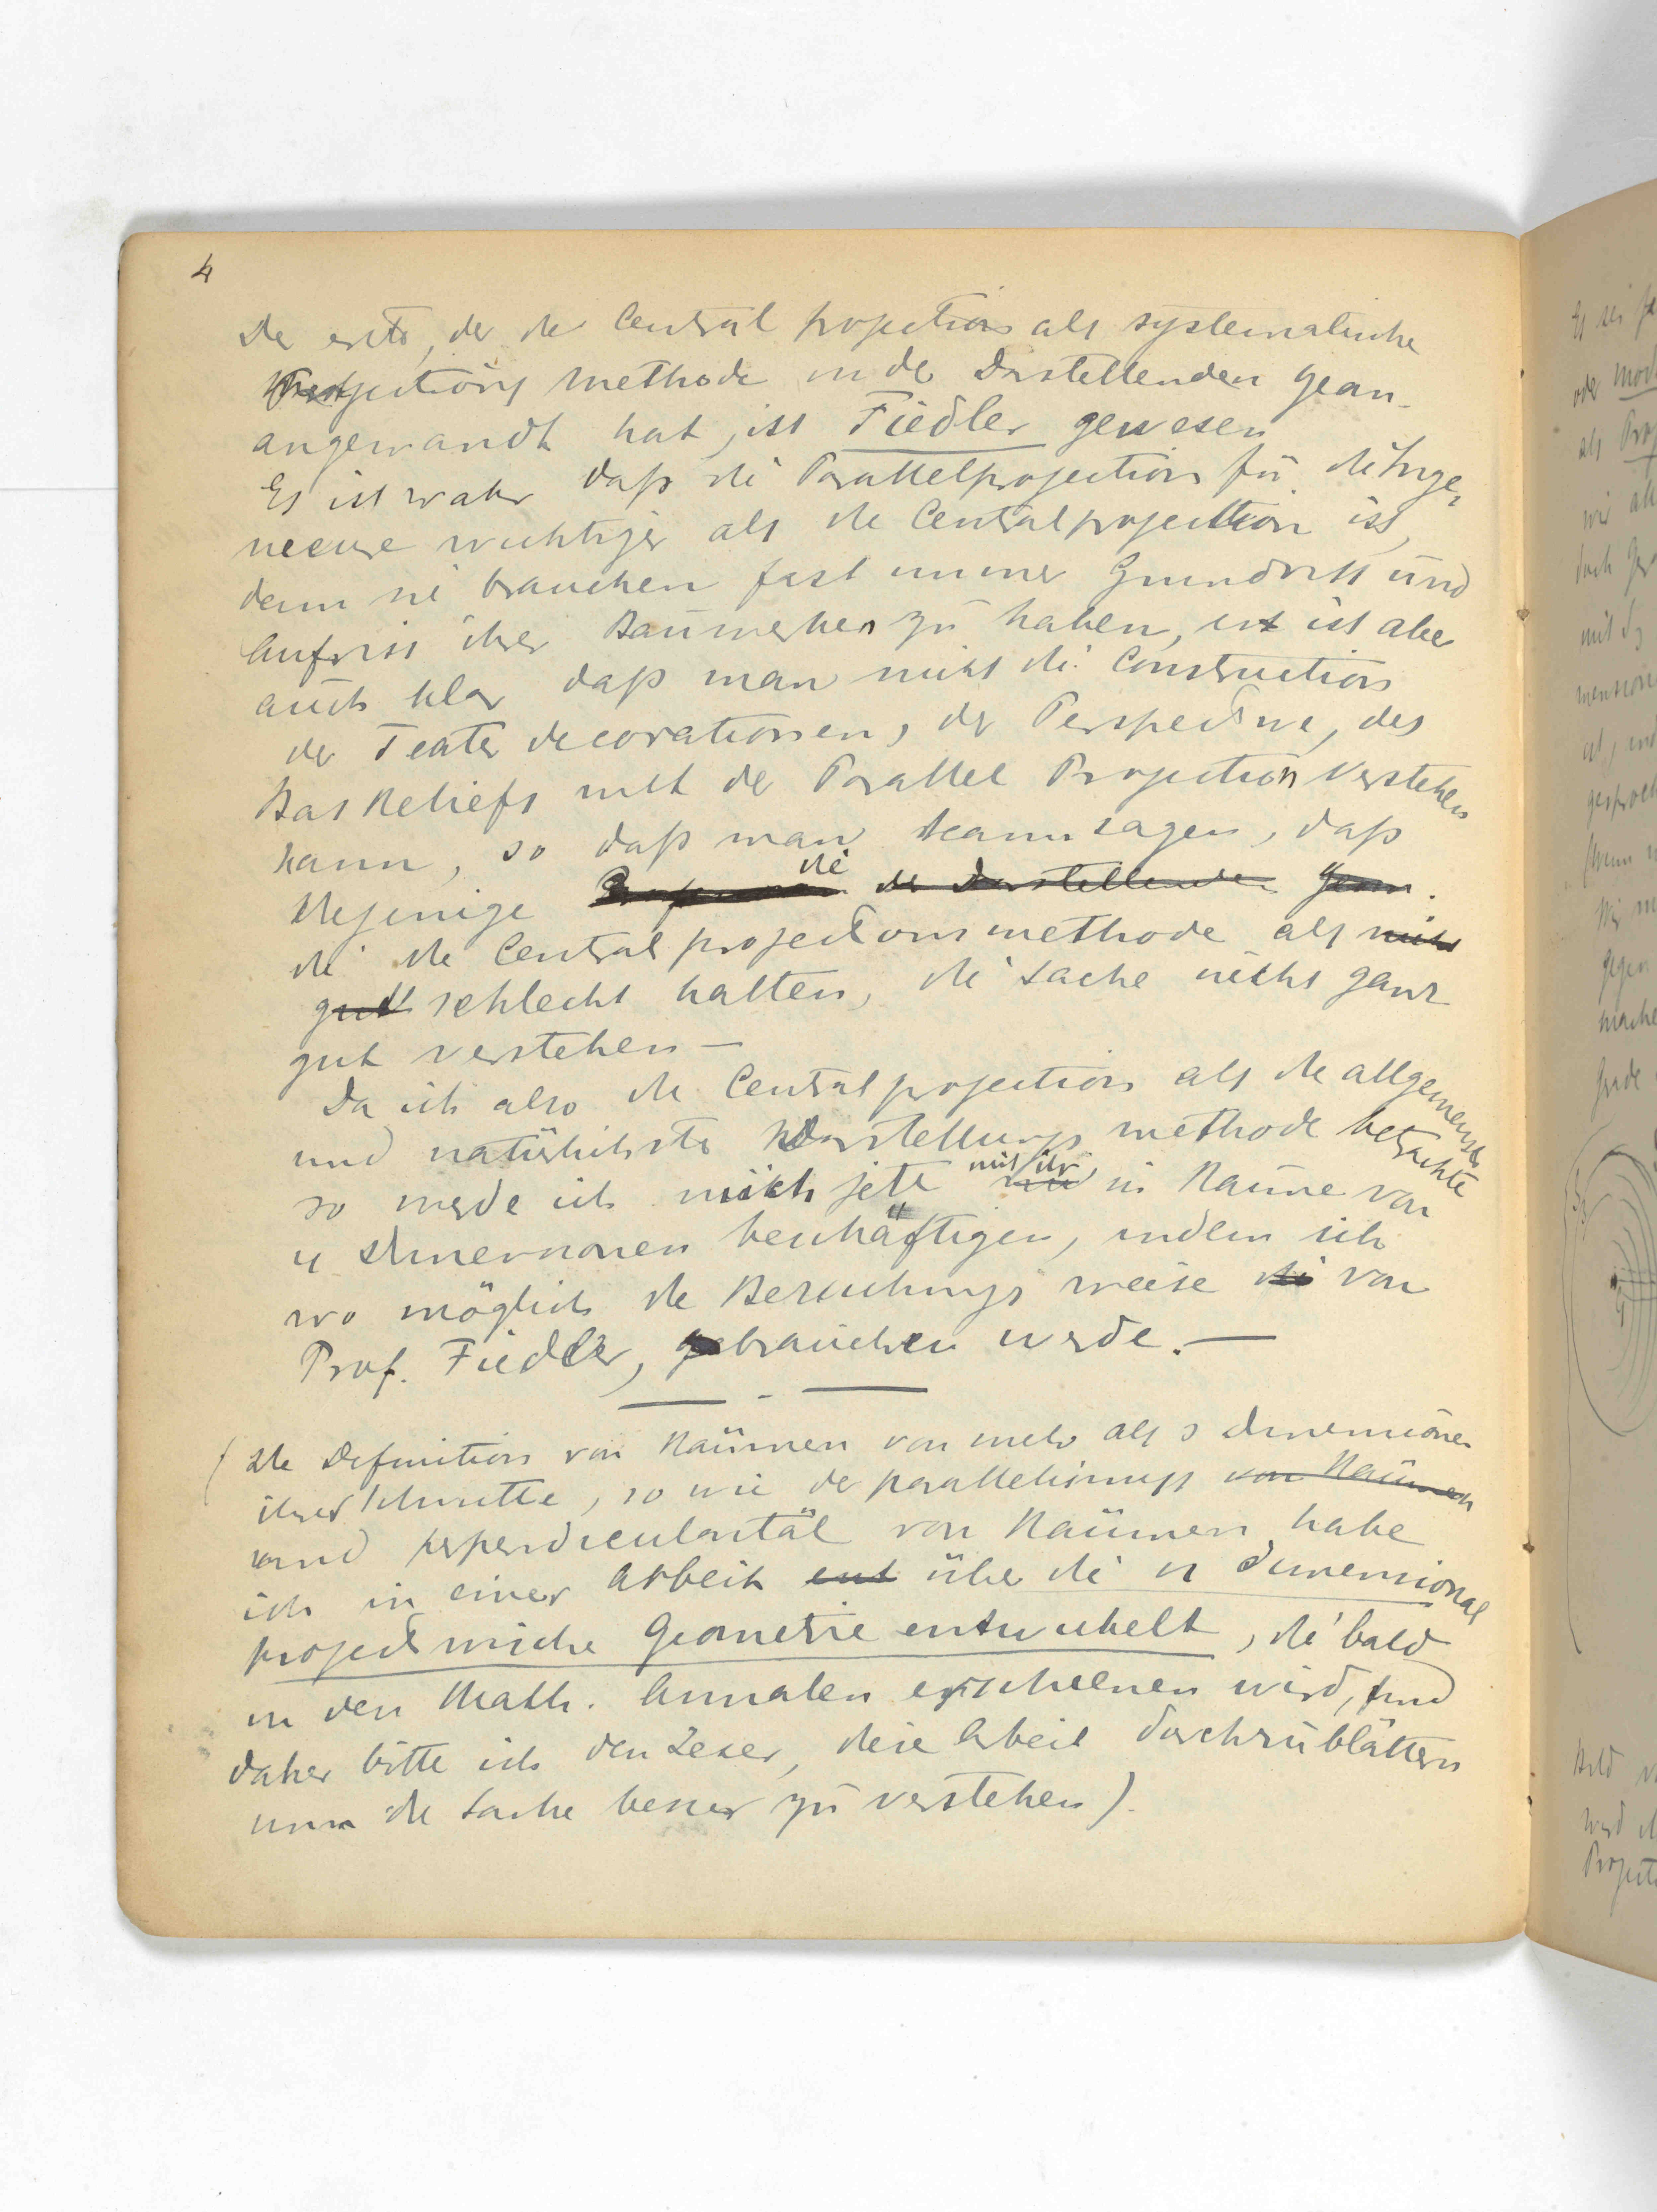 4
Der erste, der die Central projection als systematische
Projections methode in der Darstellenden Geom.
angewandt hat, ist Fiedler gewesen
Es ist wahr daß die Parallelprojection für die Inge,
neeure wichtiger als die Centralprojection ist,
denn sie brauchen fast immer Grundriss und
Aufriss ihrer Bauwerken zu haben, es ist aber
auch klar daß man nicht die Construction
der Teater decorationen, der Perspective, des
Bas Reliefs mit der Parallel Projection verstehen
kann, so daß man kann sagen, daß
diejenige die der Darstellenden Geom.
die die Centralprojectionsmethode als nicht
gut schlecht halten, die Sache nicht ganz
gut verstehen —
Da ich also die Centralprojection als die allgemeinste
und natürlichste Darstellungs methode betrachte
so werde ich mich jetzt mit ihr in Räume von
n Dimensionen beschäftigen, indem ich
wo möglich die Bezeichnungs weise die von
Prof. Fiedler, gebrauchen werde. —
(Die Definition von Räumen von mehr als 3 Dimensionen
ihrer Schnitte, so wie der parallelismus von Räumen
und perpendicularität von Räumen habe
ich in einer Arbeit ent über die n dimensional
projectivische Geometrie entwickelt, die bald
in den Math. Annalen erscheinen wird, und
daher bitte ich den Leser, diese Arbeit durchzublättern
um die Sache besser zu verstehen).
Es sei
oder
als
wir
doch
mit
ist, und
gegen
Grade
Bild
wird